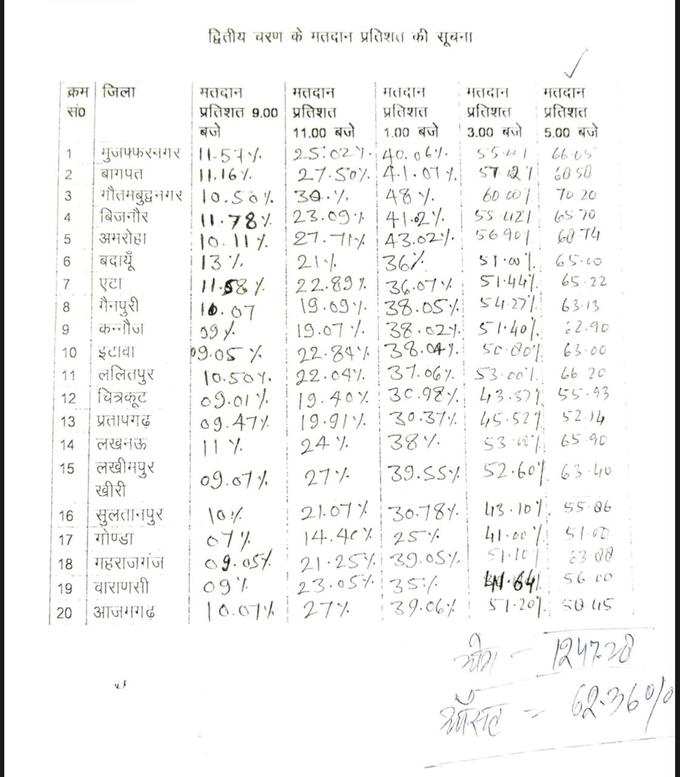 द्वितीय चरण के मतदान प्रतिशत की सूचना
क्रम सं० जिला मतदान प्रतिशत 9.00 बजे मतदान प्रतिशत 11.00 बजे मतदान प्रतिशत 1.00 बजे मतदान प्रतिशत 3.00 बजे मतदान प्रतिशत 5.00 बजे
1 मुजफ्फरनगर 11.57% 25.02% 40.06% 66.05
2 बागपत 11.16% 27.50% 41.07%
3 गौतमबुद्धनगर 10.50% 30.% 48% 60.00% 70.20
4 बिजनौर 11.78% 23.09% 41.02% 65.70
5 अमरोहा 10.11% 27.71% 43.02% 56.90%
6 बदायूँ 13% 21% 36% 51.00% 65.00
7 एटा 11.58% 22.89% 36.07% 51.44% 65.22
8 मैनपुरी 10.07 19.09% 38.05% 54.27% 63.13
9 कन्नौज 09% 19.07% 38.02% 51.40% 62.90
10 इटावा 09.05% 22.84% 38.04% 63.00
11 ललितपुर 10.50% 22.04% 37.06% 53.00% 66.20
12 चित्रकूट 09.01% 19.40% 30.98% 43.57% 55.93
13 प्रतापगढ़ 09.47% 19.91% 30.37% 45.52% 52.14
14 लखनऊ 11% 24% 38% 65.90
15 लखीमपुर खीरी 09.07% 27% 39.55% 52.60% 63.40
16 सुलतानपुर 10% 21.07% 30.78% 43.10% 55.06
17 गोण्डा 07% 14.40% 25% 41.00% 51.00
18 महराजगंज 09.05% 21.25% 39.05% 51.10
19 वाराणसी 09% 23.05% 35% 41.64% 56.00
20 आजमगढ़ 10.07% 27% 39.06% 51.20%
योग - 1247.28
औसत = 62.36%